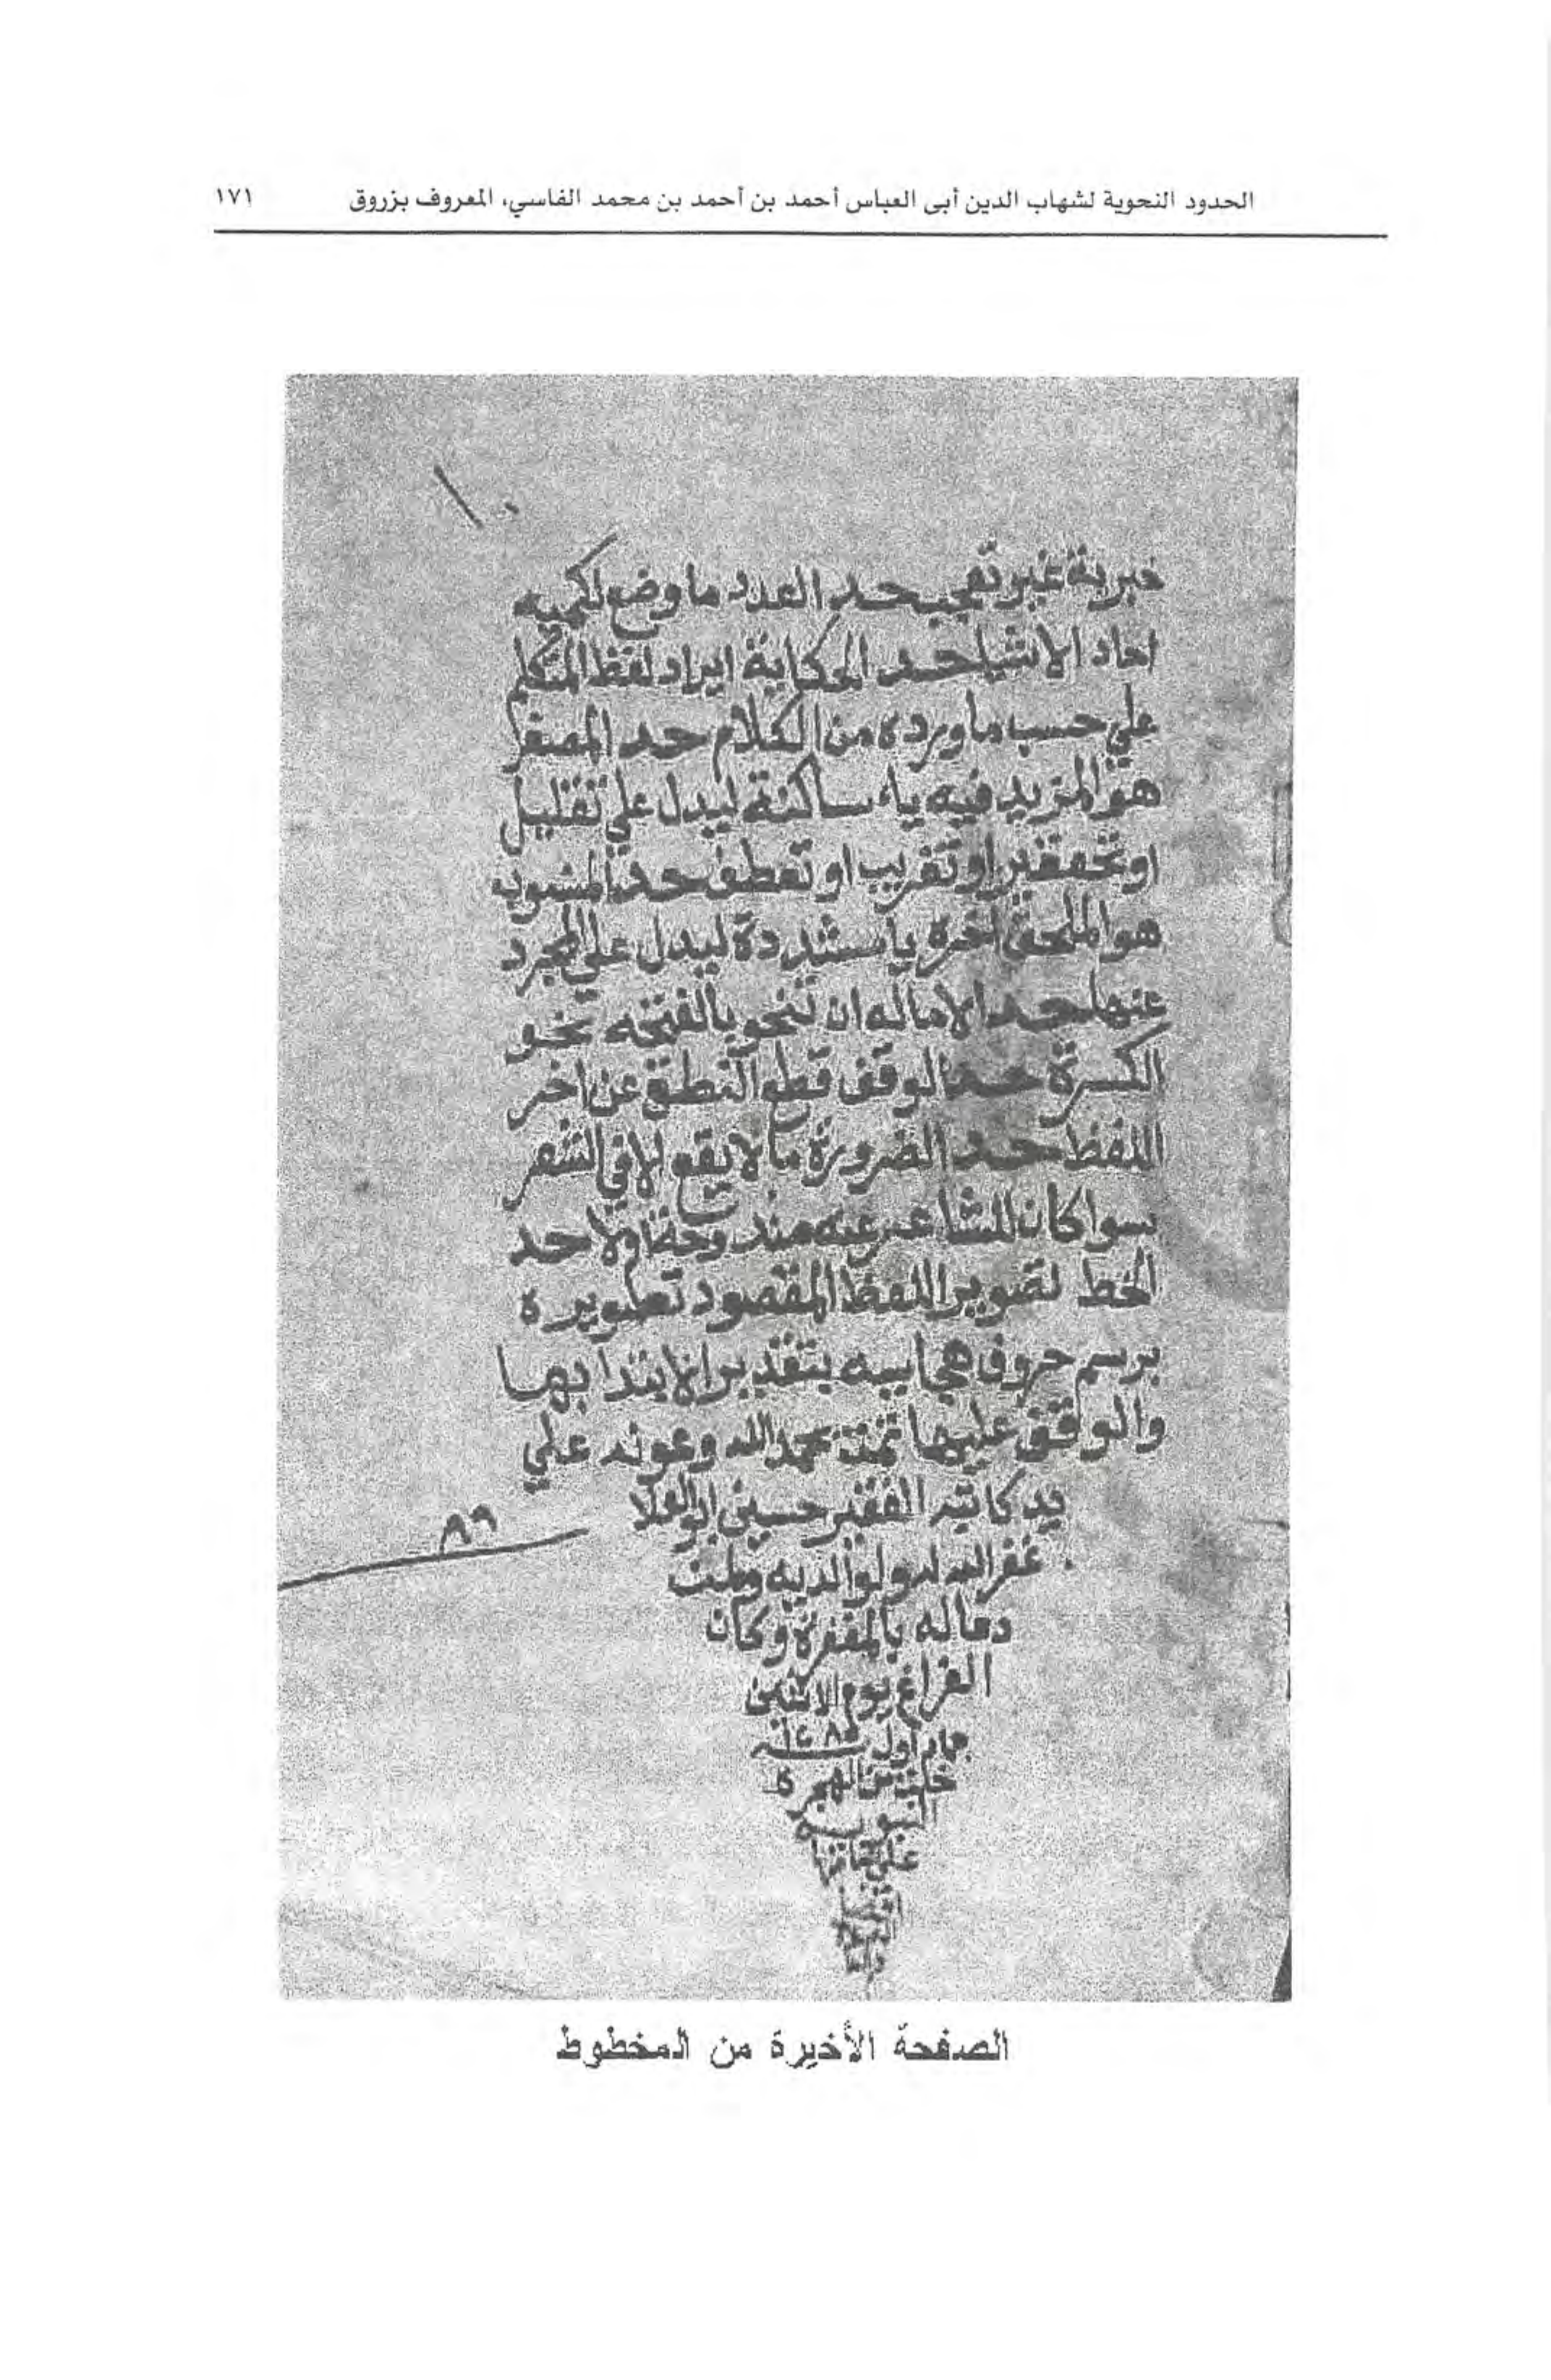 الحدود النحوية لشهاب الدين أبي العباس أحمد بن أحمد بن محمد الفاسي، المعروف بزروق ١٧١
١٠
خبرية غير تعجب حد العدد ما وضع لكميه
احاد الاشيا حد الحكاية ايراد لفظ المتكلم
علي حسب ما ورده من الكلام حد المصغر
هو المزيد فيه ياء ساكنة ليدل علي تقليل
او تحقير او تقريب او تعطف حد المنسوب
هو الملحق اخره يا مشددة ليدل علي المجرد
عنها حد الاماله ان تنحو بالفتحه نحو
الكسرة حد الوقف قطع النطق عن اخر
اللفظ حد الضرورة ما لا يقع الا في الشعر
سوا كان للشاعر عنه مندوحة اولا حد
الخط تصوير اللفظ المقصود تصويره
برسم حروف هجاييه بتقدير الابتدا بها
والوقف عليها تمت بحمد الله وعونه علي
يد كاتبه الفقير حسين ابو العلا
غفر الله له ولوالديه ولمن
دعا له بالمغفرة وكان
٨٦
الفراغ يوم الاثنين
جماد اول سنه
خلت من الهجرة
النبويه
علي
الصفحة الأخيرة من المخطوط